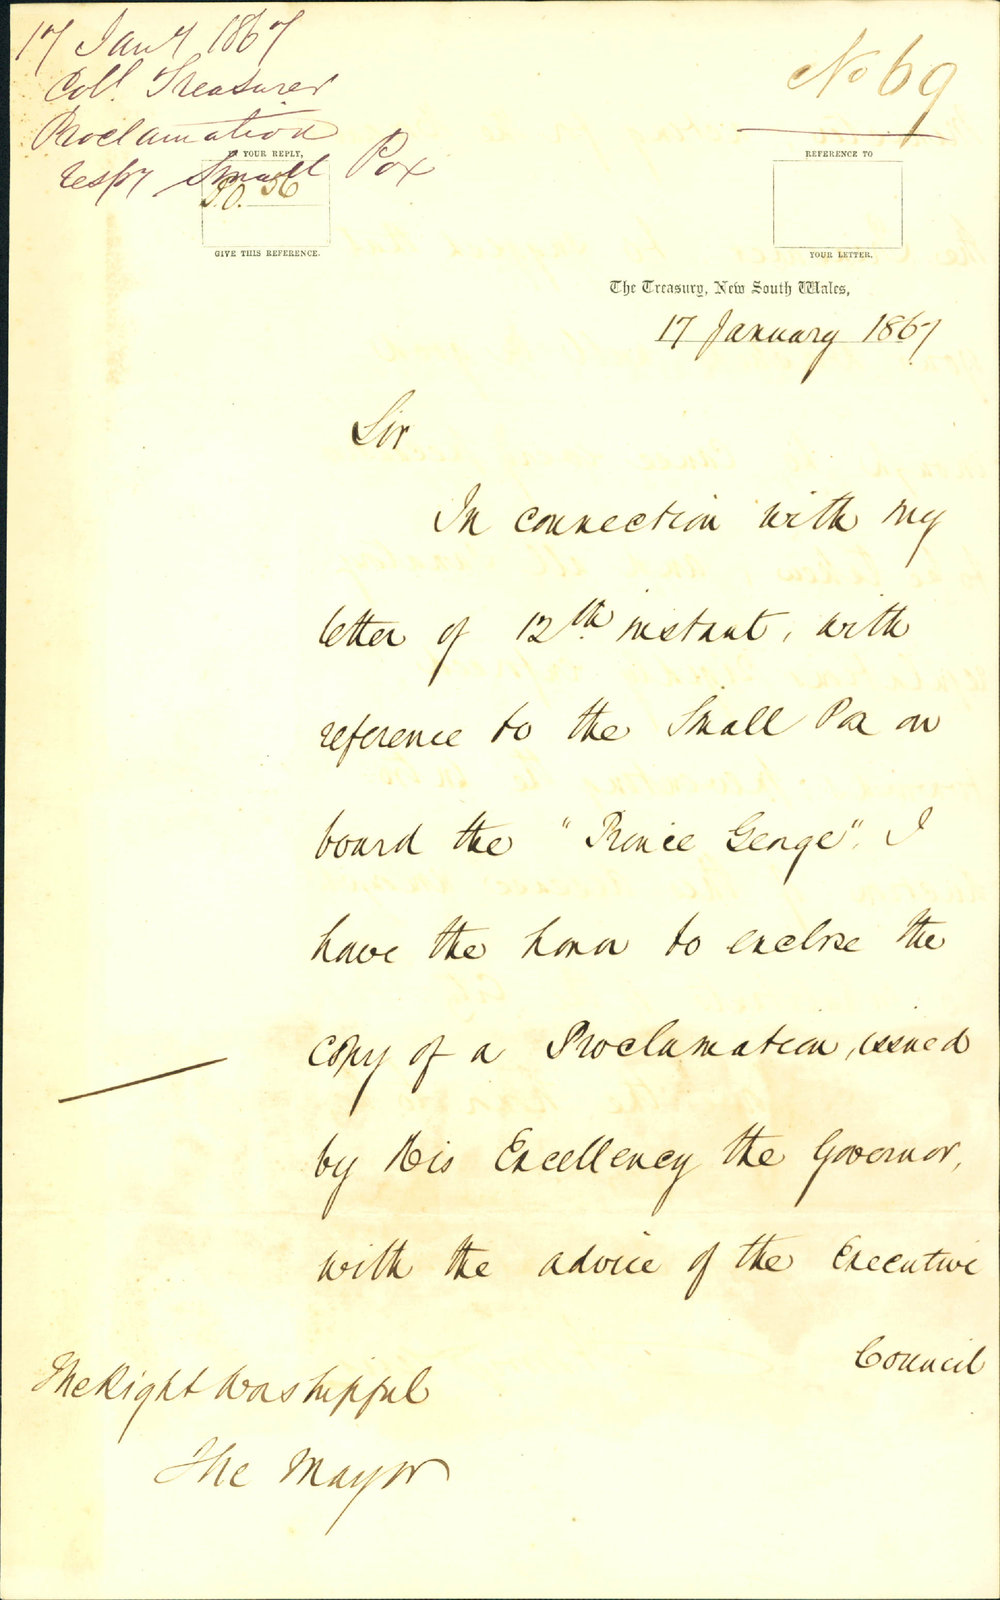 17 Jany 1867
Coll. Treasurer
Proclamation
respg Small Pox
No 69
YOUR REPLY,
50. 56
GIVE THIS REFERENCE.
REFERENCE TO
YOUR LETTER.
The Treasury, New South Wales,
17 January 1867
Sir
In connection with my
letter of 12th instant, with
reference to the Small Pox on
board the "Prince George". I
have the honor to enclose the
copy of a Proclamation, issued
by His Excellency the Governor,
with the advice of the Executive
Council
The Right Worshipful
The Mayor